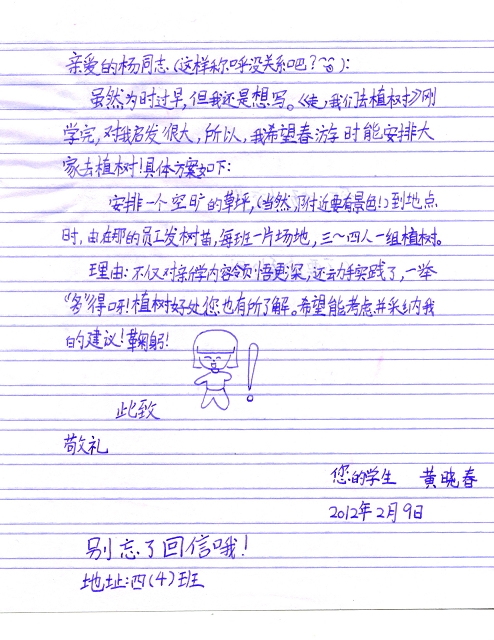 亲爱的杨同志(这样称呼没关系吧?):
虽然为时过早,但我还是想写。《走,我们去植树》刚
学完,对我启发很大,所以,我希望春游时能安排大
家去植树!具体方案如下:
安排一个空旷的草坪,(当然,附近要有景色!)到地点
时,由在那的员工发树苗,每班一片场地,三~四人一组植树。
理由:不仅对所学内容领悟更深,还动手实践了,一举
“多”得呀!植树好处您也有所了解。希望能考虑并采纳我
的建议!鞠躬!
此致
敬礼
您的学生 黄晓春
2012年2月9日
别忘了回信哦!
地址:四(4)班